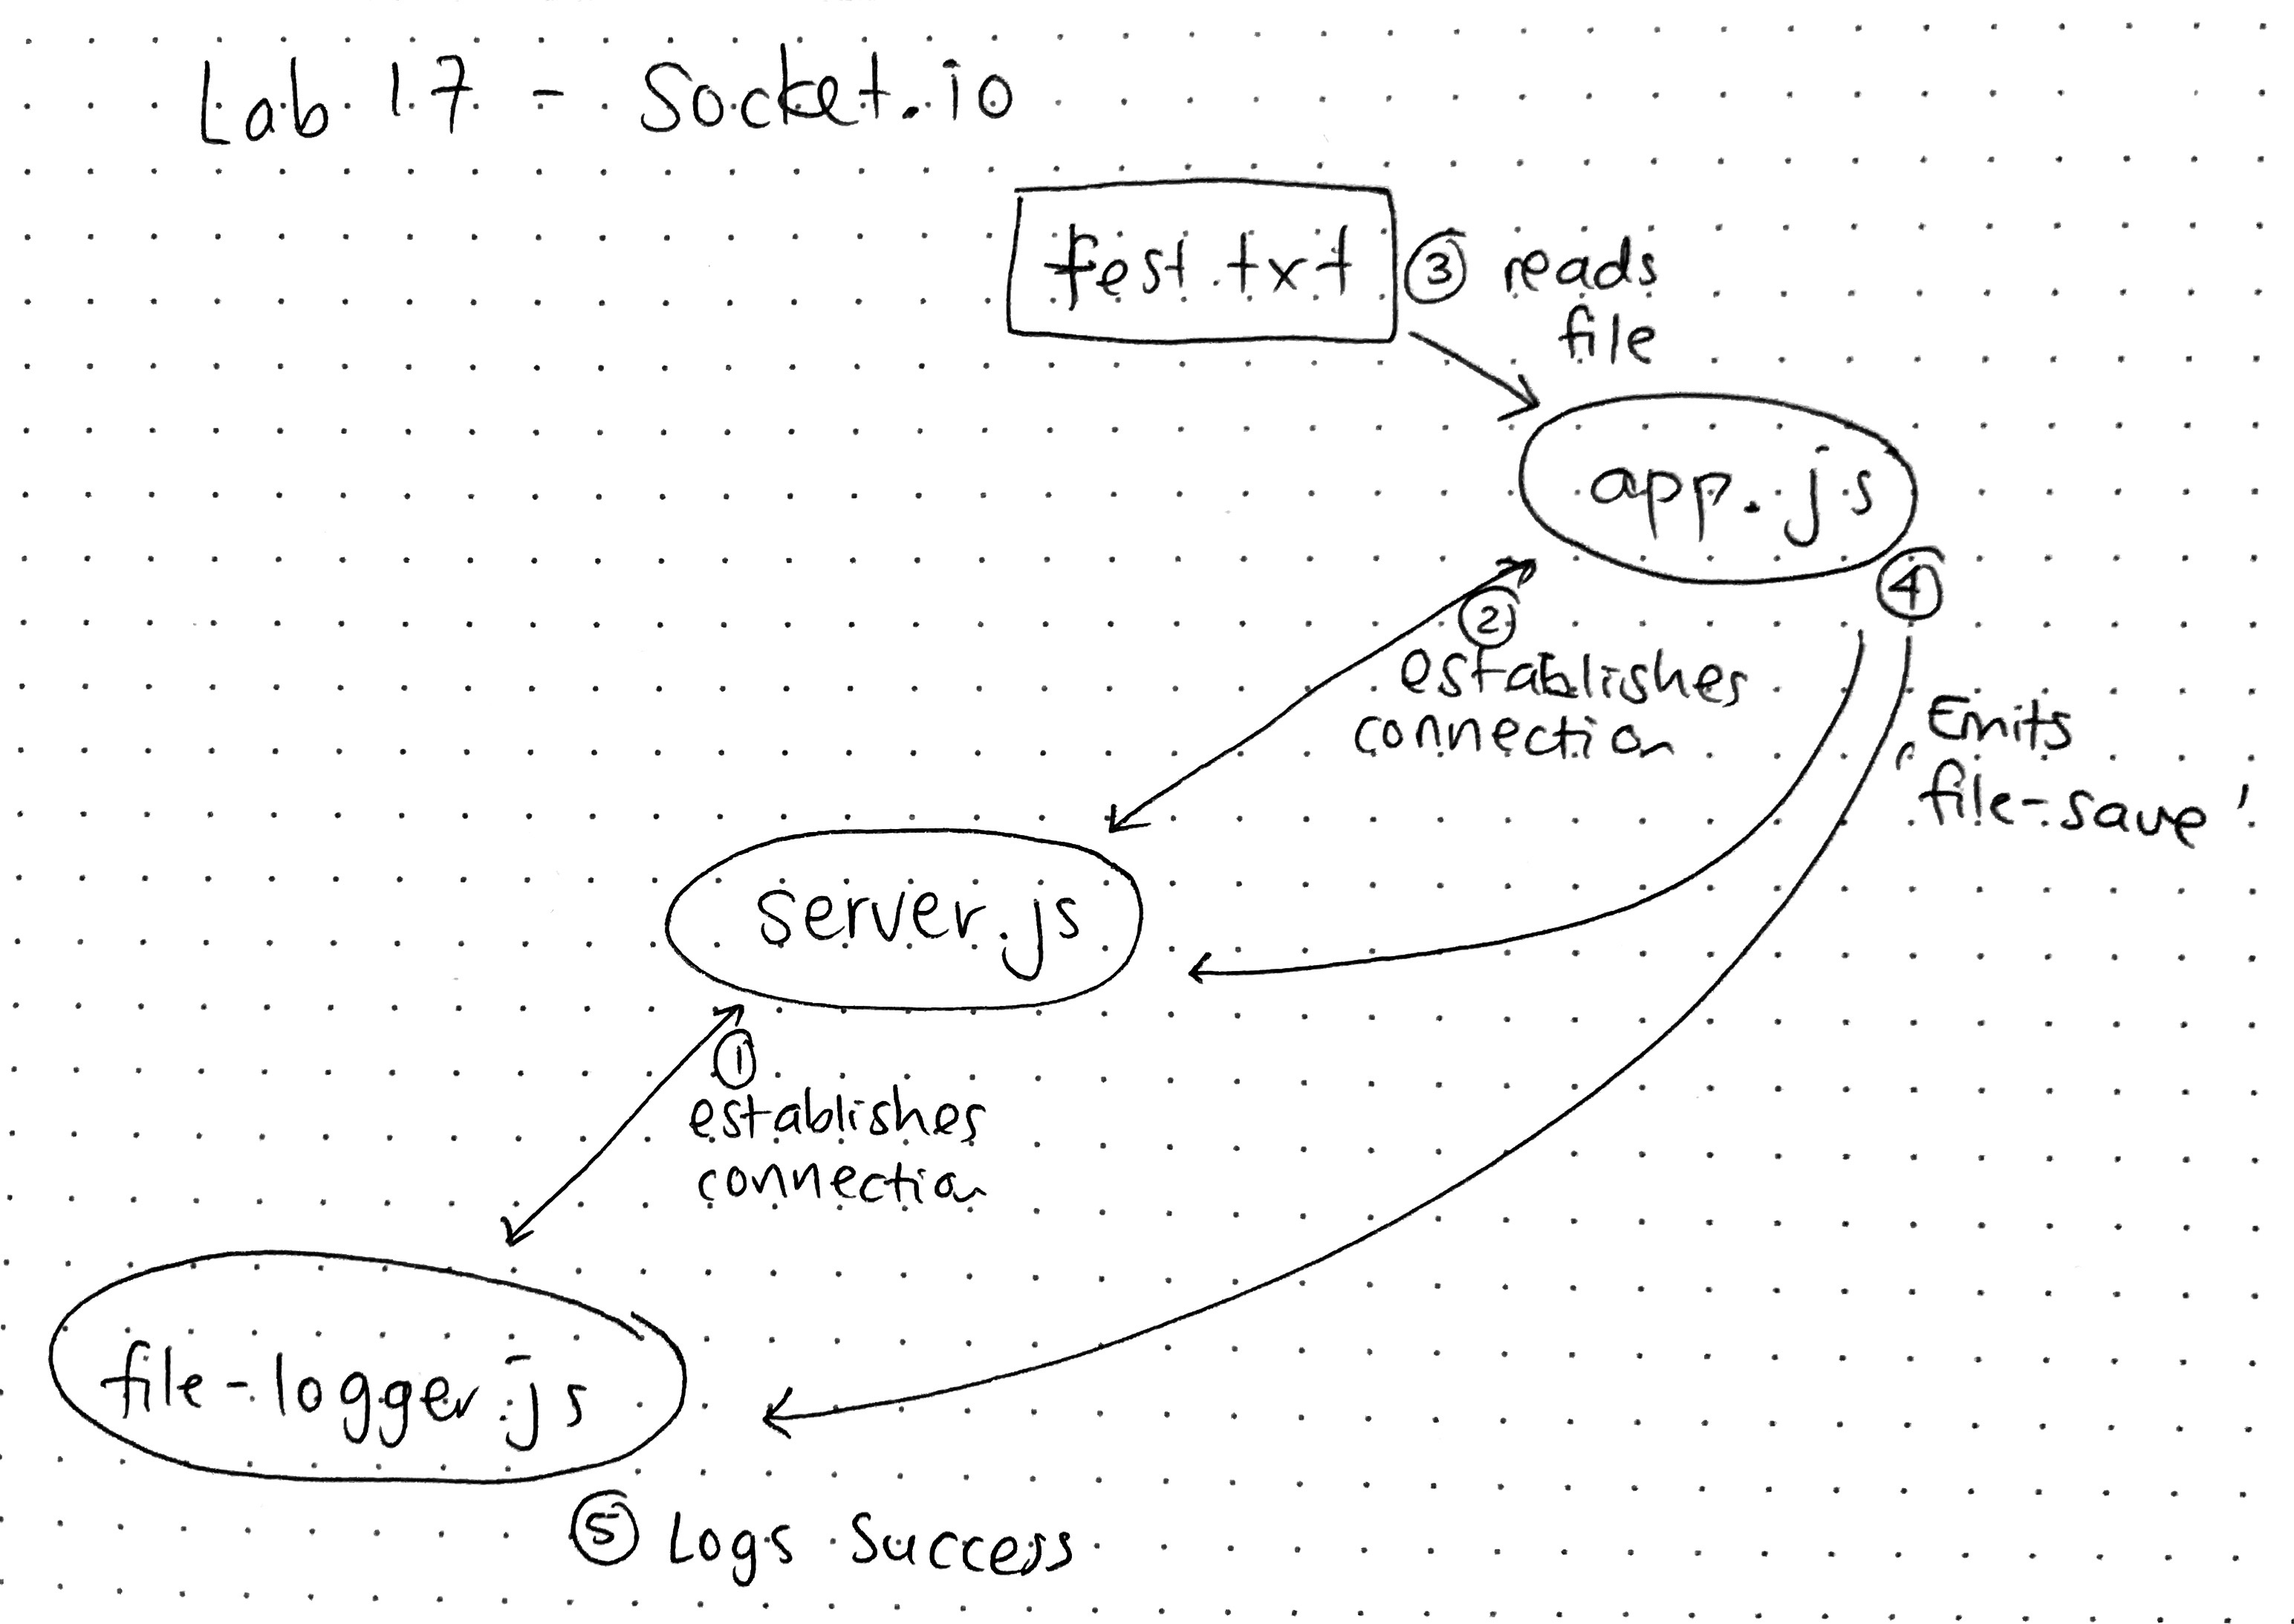 Lab 17 - Socket.io
test.txt
③ reads
file
app.js
④
②
establishes
connection
Emits
'file-save'
server.js
①
establishes
connection
file-logger.js
⑤ Logs Success